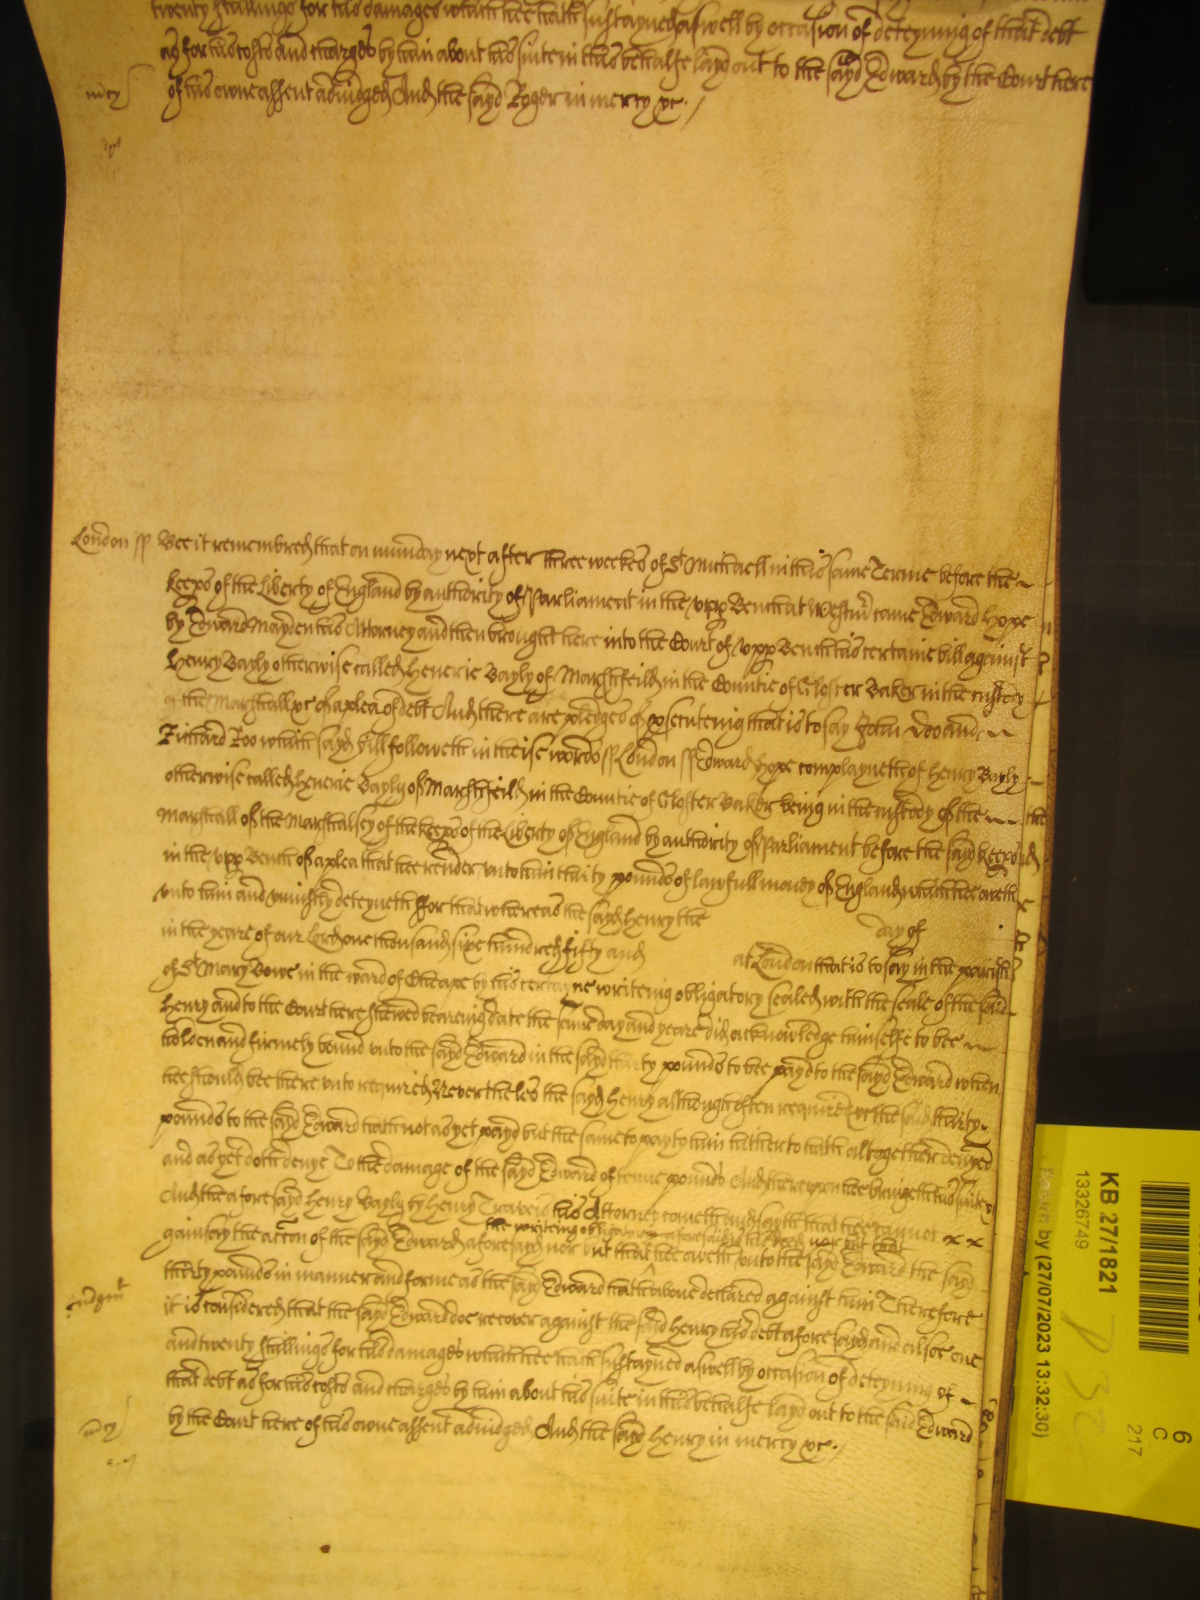 twenty shillings for his damages which hee hath susteyned aswell by occasion of deteyninge of that debt
as for his costs and charges by him about his suite in this behalfe layd out to the sayd Edward by the Court here
mcy of his owne assent adiudged And the sayd Roger in mercy &c.
London ss Bee it remembred that on munday next after three weekes of St Michaell in this same Terme before the
keeps of the Liberty of England by authority of Parliament in the upp Bench at Westmr came Edward Hope
by Edward Mayden his Attorney and then brought here into the Court of upp Bench his certaine bill against
Henry Bayly otherwise called Henerie Bayly of Marshfeild in the Countie of Gloster Baker in the custody
of the Marshall &c of a plea of debt And there are pledges of psecuteing that is to say John Doo and
Richard Roo which sayd bill followeth in theise words ss London ss Edward Hope complayneth of Henry Bayly
otherwise called Henerie Bayly of Marshfeild in the Countie of Gloster Baker being in the custody of the
Marshall of the Marshalsey of the keeps of the Liberty of England by authority of Parliament before the sayd keeps
in the upp Bench of a plea that hee render unto him thirty pounds of lawfull money of England which hee oweth
unto him and uniustly deteyneth ffor that whereas the sayd Henry the day of
in the yeare of our Lord one thousand sixe hundred fifty and at London that is to say in the parish
of St Mary Bowe in the ward of Cheape by his certayne writeing obligatory sealed with the seale of the said
Henry and to the Court here shewed beareing date the same day and yeare did acknowledge himselfe to bee
holden and firmely bound unto the sayd Edward in the sayd thirty pounds to bee payd to the sayd Edward when
hee should bee there unto required Neverthelesse the sayd Henry although often required &c the said thirty
pounds to the sayd Edward hath not as yet payd but the same to pay to him hitherto hath altogether denyed
and as yet doth denye To the damage of the sayd Edward of tenne pounds And thereupon hee bringeth his suite &c
And the aforesayd Henry Bayly by Henry Travers his Attorney cometh and sayth that hee cannot
the writeing obligatory aforesaid nor but that
gainsay the accon of the sayd Edward aforesayd nor but that hee oweth unto the sayd Edward the sayd
thirty pounds in manner and forme as the sayd Edward hath above declared against him Therefore
Judgmt it is considered that the sayd Edward doe recover against the said Henry his debt aforesayd and alsoe one
and twenty shillings for his damages which hee hath susteyned aswell by occasion of deteyning of
that debt as for his costs and charges by him about his suite in this behalfe layd out to the said Edward
mcy by the Court here of his owne assent adiudged And the sayd Henry in mercy &c.
KB 27/1821
13326749
(27/07/2023 13:32:30)
6
C
217